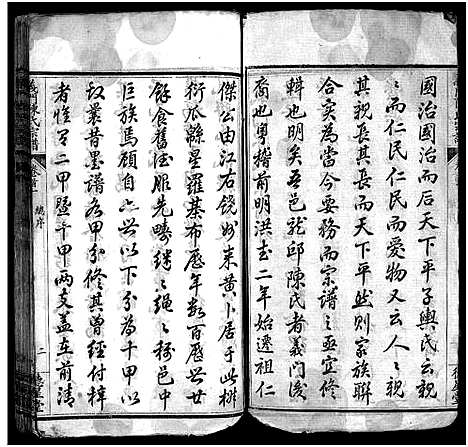 國治國治而后天下平子輿氏云親
親而仁民仁民而愛物又云人人親
其親長其長而天下平然則家族聯
合實為當今要務而宗譜之亟宜修
輯也明矣吾邑龍邱陳氏者義門後
裔也粵稽前明洪武二年始遷祖仁
傑公由江右饒州來黃卜居于此椒
衍瓜緜星羅基布歷年数百歷世廿
餘食舊德服先疇繩繩稱邑中
巨族焉顧自六世以下分為十甲以
叙叢昔墨譜各甲分修其曾經付梓
者惟有二甲暨十甲兩支蓋在前清
義門陳氏宗譜
卷首
總序
二
德星堂